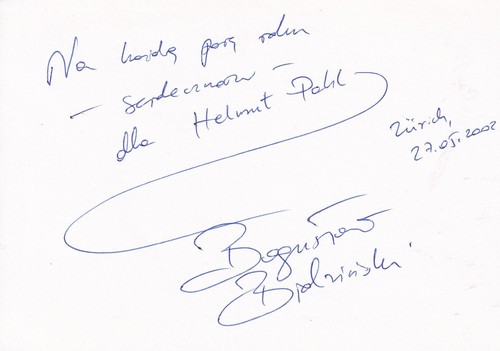 Na każdą porę roku
– serdeczność –
dla Helmut Pahl
Zürich,
27.05.2002
Bogusław